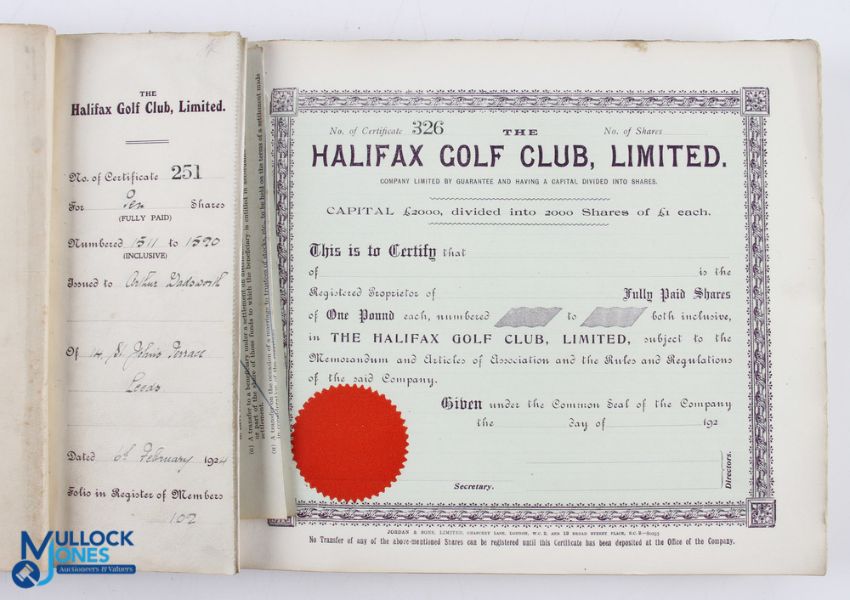 THE
Halifax Golf Club, Limited.
No. of Certificate 251
For Ten Shares
(FULLY PAID)
Numbered 1511 to 1520
(INCLUSIVE)
Issued to Arthur Wadsworth
Of 14 St John's Terrace
Leeds
Dated February 1924
Folio in Register of Members
102
(a) A transfer to a beneficiary under a settlement
or part of the
settlement.
No. of Certificate 326 THE No. of Shares
HALIFAX GOLF CLUB, LIMITED.
COMPANY LIMITED BY GUARANTEE AND HAVING A CAPITAL DIVIDED INTO SHARES.
CAPITAL £2000, divided into 2000 Shares of £1 each.
This is to Certify that
of is the
Registered Proprietor of Fully Paid Shares
of One Pound each, numbered to both inclusive,
in THE HALIFAX GOLF CLUB, LIMITED, subject to the
Memorandum and Articles of Association and the Rules and Regulations
of the said Company.
Given under the Common Seal of the Company
the day of 192
Secretary.
Directors.
JORDAN & SONS, LIMITED, CHANCERY LANE, LONDON, W.C.2, AND 13 BROAD STREET PLACE, E.C.2
No Transfer of any of the above-mentioned Shares can be registered until this Certificate has been deposited at the Office of the Company.
MULLOCK
JONES
Auctioneers & Valuers